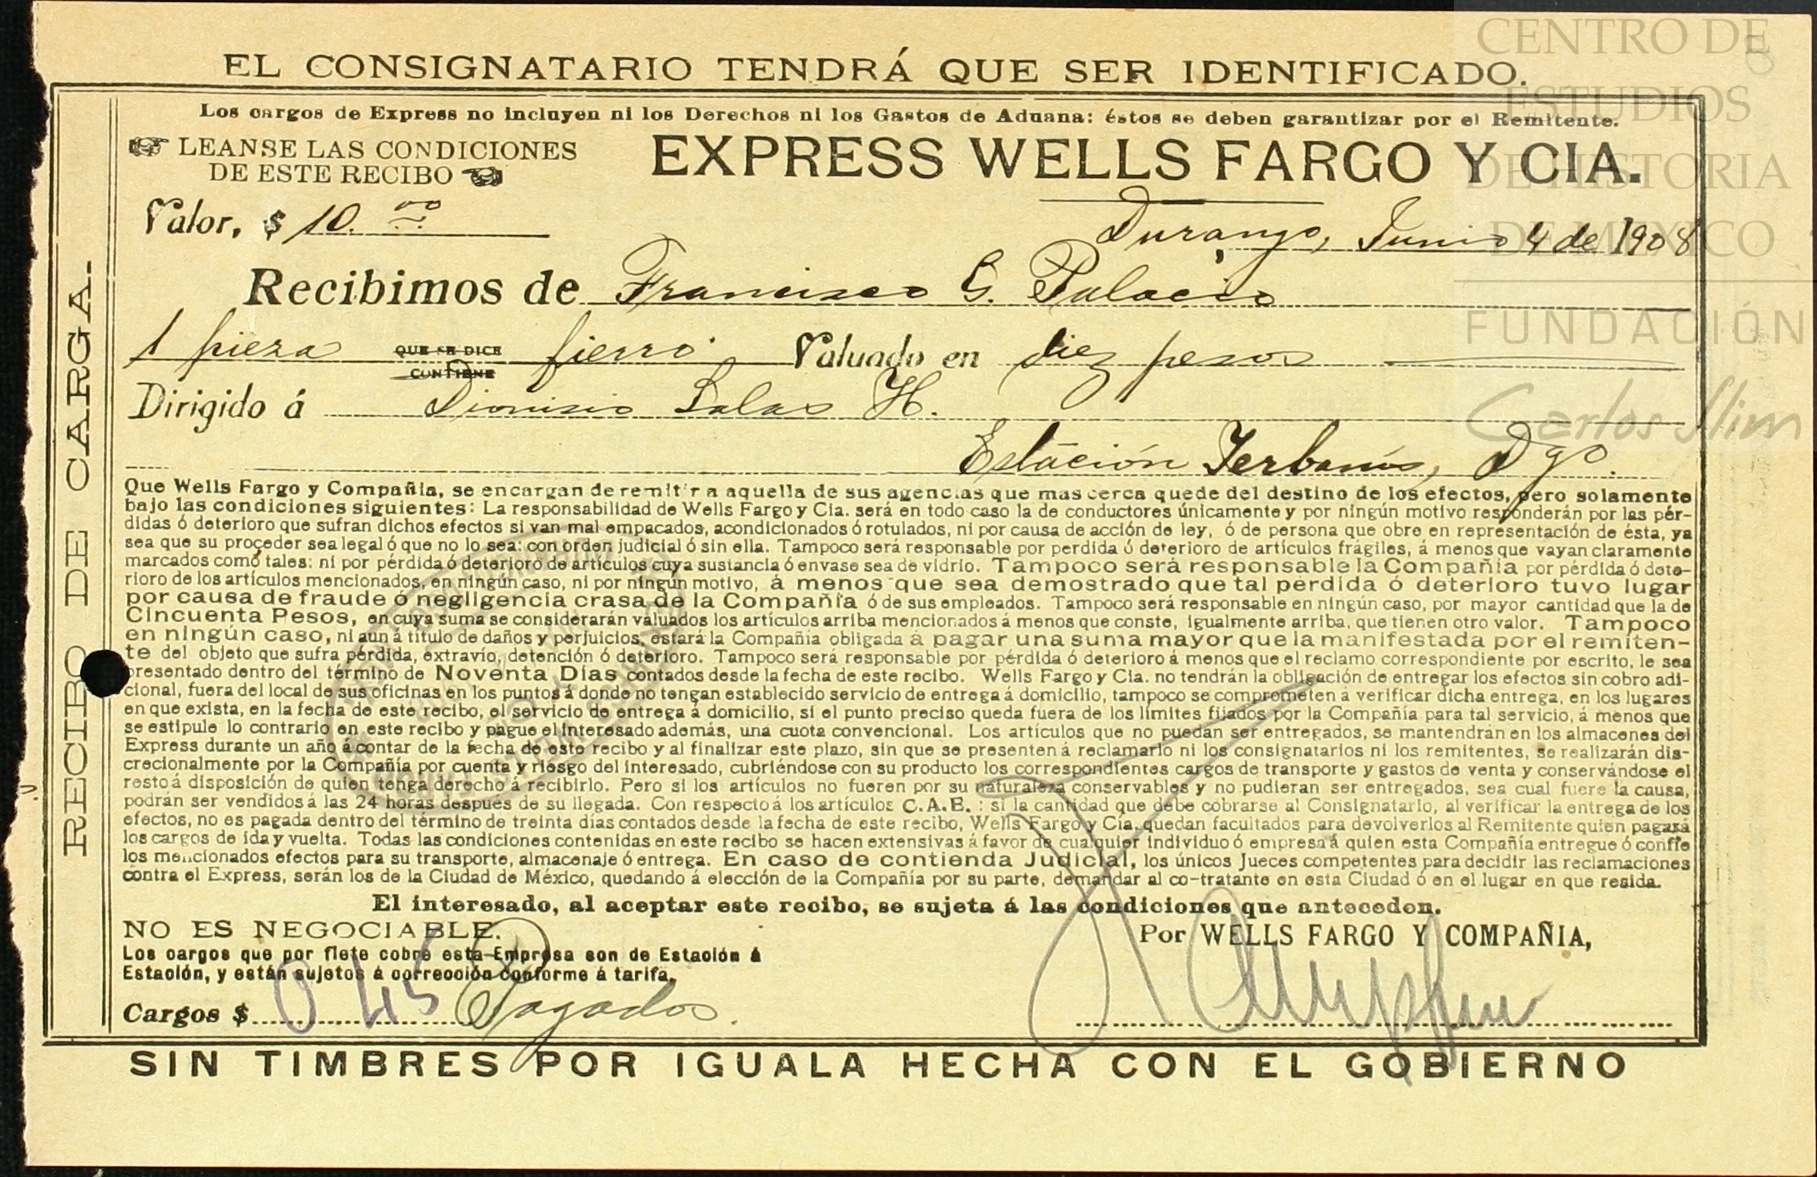 EL CONSIGNATARIO TENDRÁ QUE SER IDENTIFICADO.
Los cargos de Express no incluyen ni los Derechos ni los Gastos de Aduana: éstos se deben garantizar por el Remitente.
LEANSE LAS CONDICIONES
DE ESTE RECIBO
EXPRESS WELLS FARGO Y CIA.
Valor, $ 10.00
Durango, Junio 4 de 1908
Recibimos de Francisco G. Palacio
1 pieza QUE SE DICE CONTIENE fierro Valuado en diez pesos
Dirigido á Dionisio Salas H.
Estación Yerbanís, Dgo.
Que Wells Fargo y Compañía, se encargan de remitir a aquella de sus agencias que mas cerca quede del destino de los efectos, pero solamente
bajo las condiciones siguientes: La responsabilidad de Wells Fargo y Cia. será en todo caso la de conductores únicamente y por ningún motivo responderán por las pér-
didas ó deterioro que sufran dichos efectos si van mal empacados, acondicionados ó rotulados, ni por causa de acción de ley, ó de persona que obre en representación de ésta, ya
sea que su proceder sea legal ó que no lo sea: con orden judicial ó sin ella. Tampoco será responsable por perdida ó deterioro de artículos frágiles, á menos que vayan claramente
marcados como tales: ni por pérdida ó deterioro de artículos cuya sustancia ó envase sea de vidrio. Tampoco será responsable la Compañía por pérdida ó dete-
rioro de los artículos mencionados, en ningún caso, ni por ningún motivo, á menos que sea demostrado que tal pérdida ó deterioro tuvo lugar
por causa de fraude ó negligencia crasa de la Compañía ó de sus empleados. Tampoco será responsable en ningún caso, por mayor cantidad que la de
Cincuenta Pesos, en cuya suma se considerarán valuados los artículos arriba mencionados á menos que conste, igualmente arriba, que tienen otro valor. Tampoco
en ningún caso, ni aun á título de daños y perjuicios, estará la Compañía obligada á pagar una suma mayor que la manifestada por el remiten-
te del objeto que sufra pérdida, extravío, detención ó deterioro. Tampoco será responsable por pérdida ó deterioro á menos que el reclamo correspondiente por escrito, le sea
presentado dentro del término de Noventa Días contados desde la fecha de este recibo. Wells Fargo y Cia. no tendrán la obligación de entregar los efectos sin cobro adi-
cional, fuera del local de sus oficinas en los puntos á donde no tengan establecido servicio de entrega á domicilio, tampoco se comprometen á verificar dicha entrega, en los lugares
en que exista, en la fecha de este recibo, el servicio de entrega á domicilio, si el punto preciso queda fuera de los límites fijados por la Compañía para tal servicio, á menos que
se estipule lo contrario en este recibo y pague el interesado además, una cuota convencional. Los artículos que no puedan ser entregados, se mantendrán en los almacenes del
Express durante un año á contar de la fecha de este recibo y al finalizar este plazo, sin que se presenten á reclamarlo ni los consignatarios ni los remitentes, se realizarán dis-
crecionalmente por la Compañía por cuenta y riesgo del interesado, cubriéndose con su producto los correspondientes cargos de transporte y gastos de venta y conservándose el
resto á disposición de quien tenga derecho á recibirlo. Pero si los artículos no fueren por su naturaleza conservables y no pudieran ser entregados, sea cual fuere la causa,
podrán ser vendidos á las 24 horas después de su llegada. Con respecto á los artículos C.A.E.: si la cantidad que debe cobrarse al Consignatario, al verificar la entrega de los
efectos, no es pagada dentro del término de treinta días contados desde la fecha de este recibo, Wells Fargo y Cia. quedan facultados para devolverlos al Remitente quien pagará
los cargos de ida y vuelta. Todas las condiciones contenidas en este recibo se hacen extensivas á favor de cualquier individuo ó empresa á quien esta Compañía entregue ó confíe
los mencionados efectos para su transporte, almacenaje ó entrega. En caso de contienda Judicial, los únicos Jueces competentes para decidir las reclamaciones
contra el Express, serán los de la Ciudad de México, quedando á elección de la Compañía por su parte, demandar al co-tratante en esta Ciudad ó en el lugar en que resida.
El interesado, al aceptar este recibo, se sujeta á las condiciones que anteceden.
NO ES NEGOCIABLE.
Los cargos que por flete cobre esta Empresa son de Estación á
Estación, y están sujetos á corrección conforme á tarifa.
Por WELLS FARGO Y COMPAÑIA,
Cargos $ 0.45 Pagados.
SIN TIMBRES POR IGUALA HECHA CON EL GOBIERNO
RECIBO DE CARGA.
CENTRO DE
ESTUDIOS
DE HISTORIA
DE MÉXICO
FUNDACIÓN
Carlos Slim